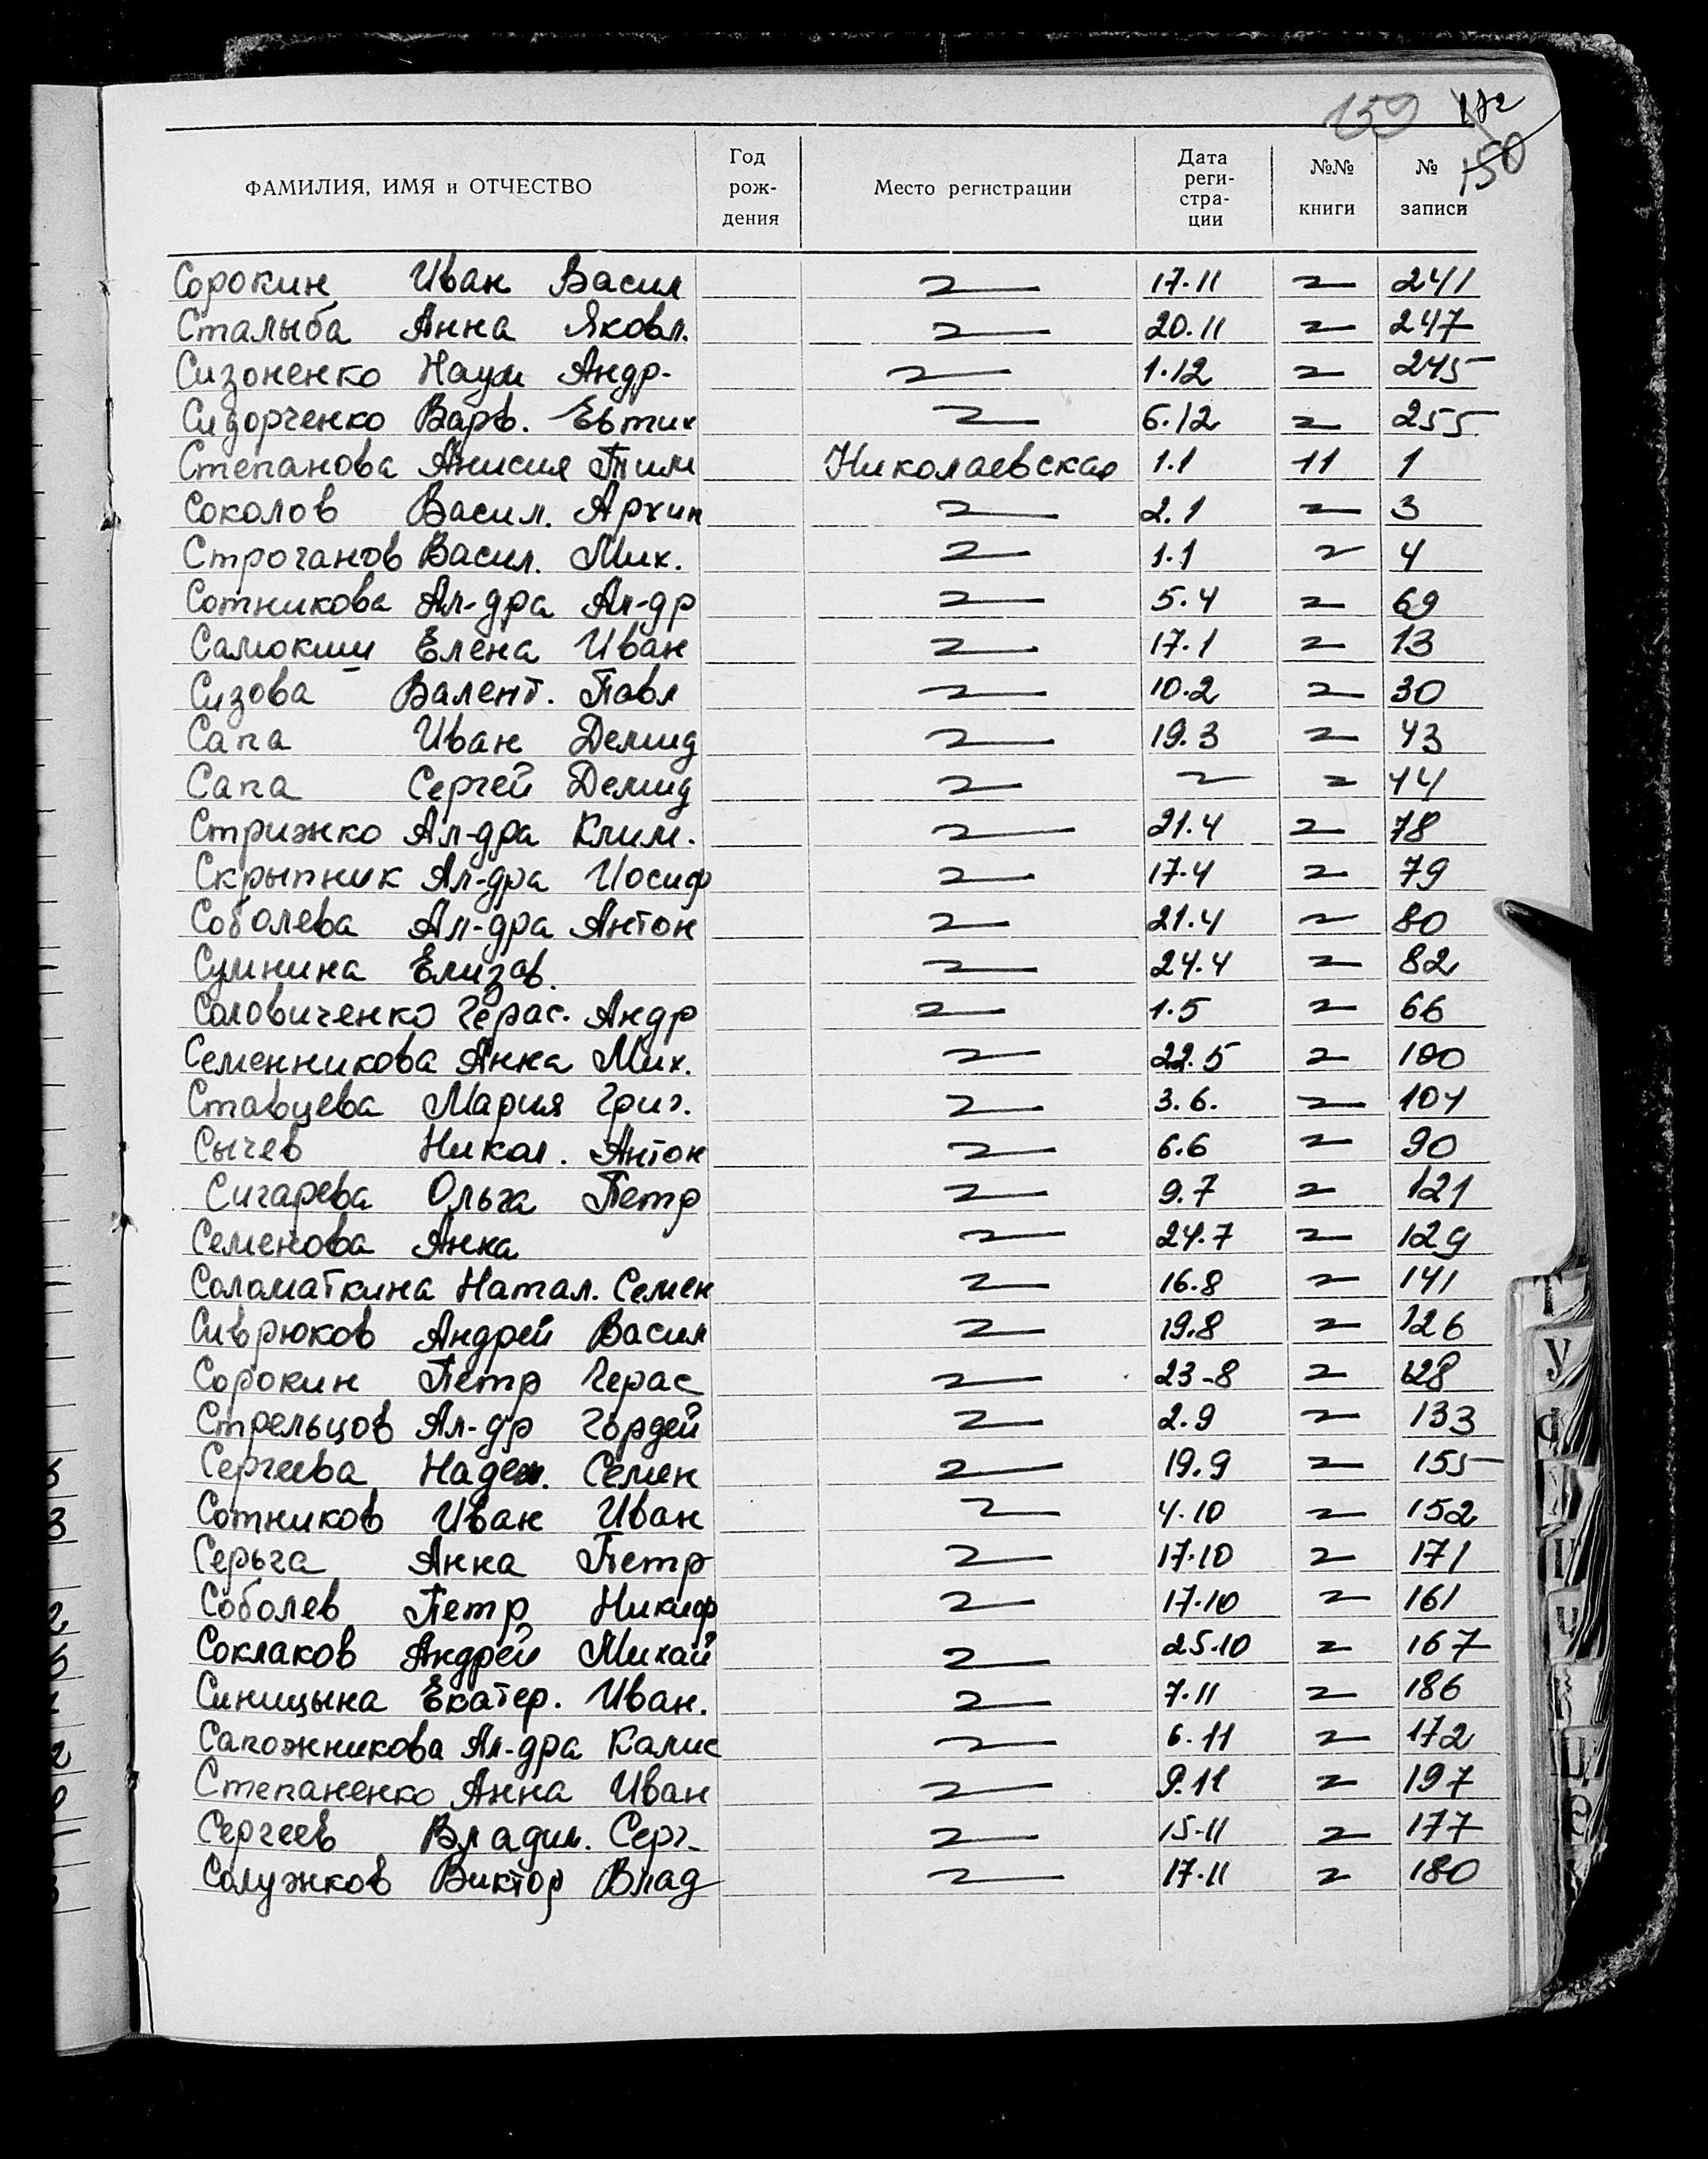 159 172
150
ФАМИЛИЯ, ИМЯ и ОТЧЕСТВО Год рож- дения Место регистрации Дата реги- стра- ции №№ книги № записи
Сорокин Иван Васил 17.11 241
Сталыба Анна Яковл. 20.11 247
Сизоненко Наум Андр. 1.12 245
Сидорченко Варв. Евтих 6.12 255
Степанова Анисия Тим Николаевская 1.1 11 1
Соколов Васил. Архип 2.1 3
Строганов Васил. Мих. 1.1 4
Сотникова Ал-дра Ал-др 5.4 69
Самокиш Елена Иван 17.1 13
Сизова Валент. Павл 10.2 30
Сапа Иван Демид 19.3 43
Сапа Сергей Демид 44
Стрижко Ал-дра Клим. 21.4 78
Скрыпник Ал-дра Иосиф 17.4 79
Соболева Ал-дра Антон 21.4 80
Сумнина Елизав. 24.4 82
Соловиченко Герас. Андр 1.5 66
Семенникова Анна Мих. 22.5 100
Ставцева Мария Григ. 3.6. 104
Сычев Никол. Антон 6.6 90
Сигарева Ольга Петр 9.7 121
Семенова Анна 24.7 129
Соломаткина Натал. Семен 16.8 141
Сиврюков Андрей Васил 19.8 126
Сорокин Петр Герас 23-8 128
Стрельцов Ал-др Гордей 2.9 133
Сергеева Надеж. Семен 19.9 155
Сотников Иван Иван 4.10 152
Серьга Анна Петр 17.10 171
Соболев Петр Никиф 17.10 161
Соклаков Андрей Михай 25.10 167
Синицына Екатер. Иван. 7.11 186
Сапожникова Ал-дра Калис 6.11 172
Степаненко Анна Иван 9.11 197
Сергеев Владим. Серг. 15-11 177
Солужков Виктор Влад 17.11 180
Т
У